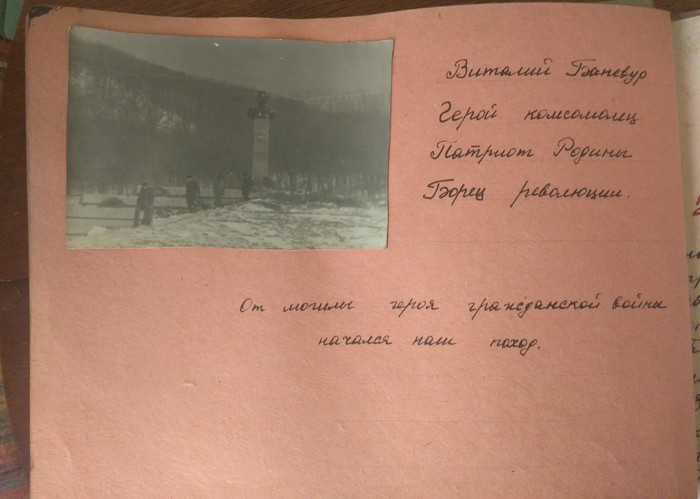 Виталий Баневур
Герой комсомолец
Патриот Родины
Борец революции.
От могилы героя гражданской войны
начался наш поход.